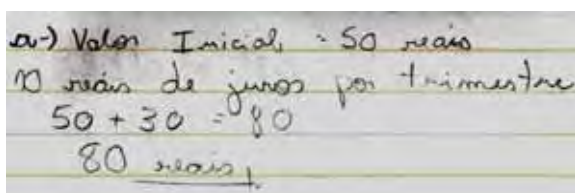 a-) Valor Inicial, = 50 reais
10 reais de juros por trimestre
50 + 30 = 80
80 reais